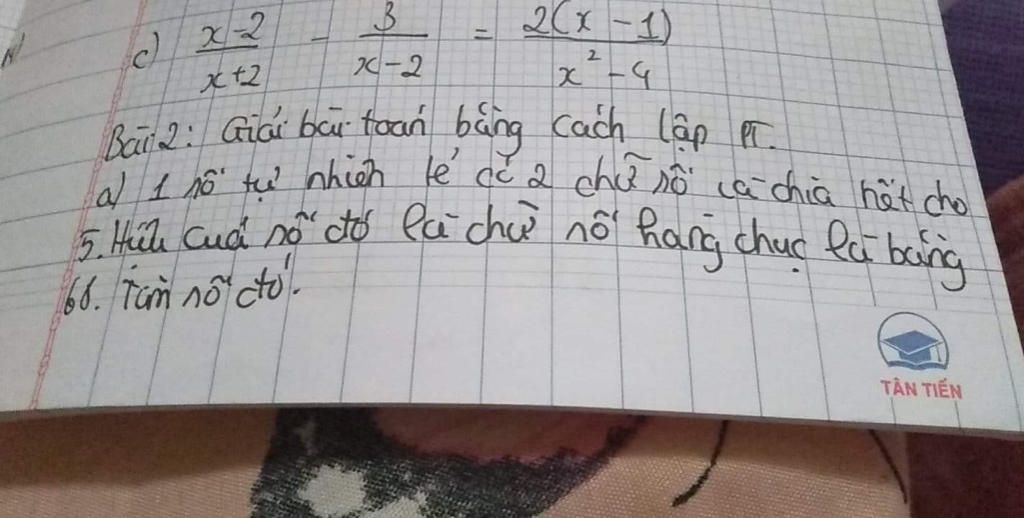 c) x-2/x+2 - 3/x-2 = 2(x-1)/x²-4
Bài 2: Giải bài toán bằng cách lập PT.
a) 1 số tự nhiên lẻ có 2 chữ số và chia hết cho
5. Hiệu của số đó và chữ số hàng chục là bằng
68. Tìm số đó.
TÂN TIẾN